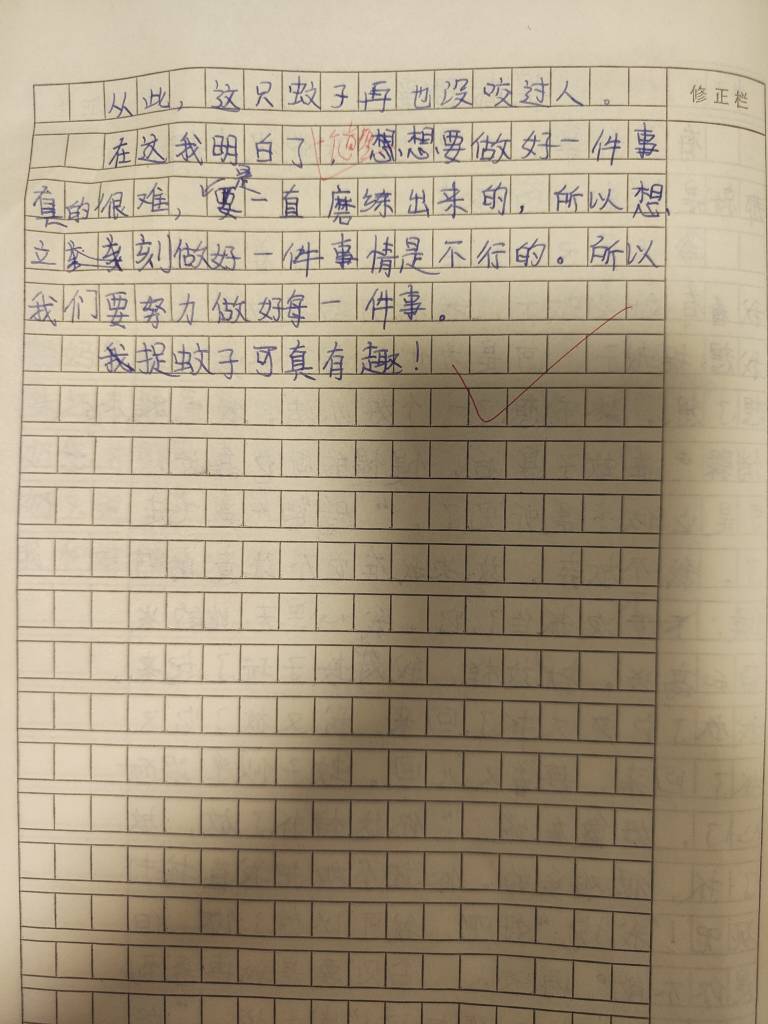 从此，这只蚊子再也没咬过人。
修正栏
在这我明白了，想想要做好一件事
真的很难，是要一直磨练出来的，所以想
立刻做好一件事情是不行的。所以
我们要努力做好每一件事。
我捉蚊子可真有趣！